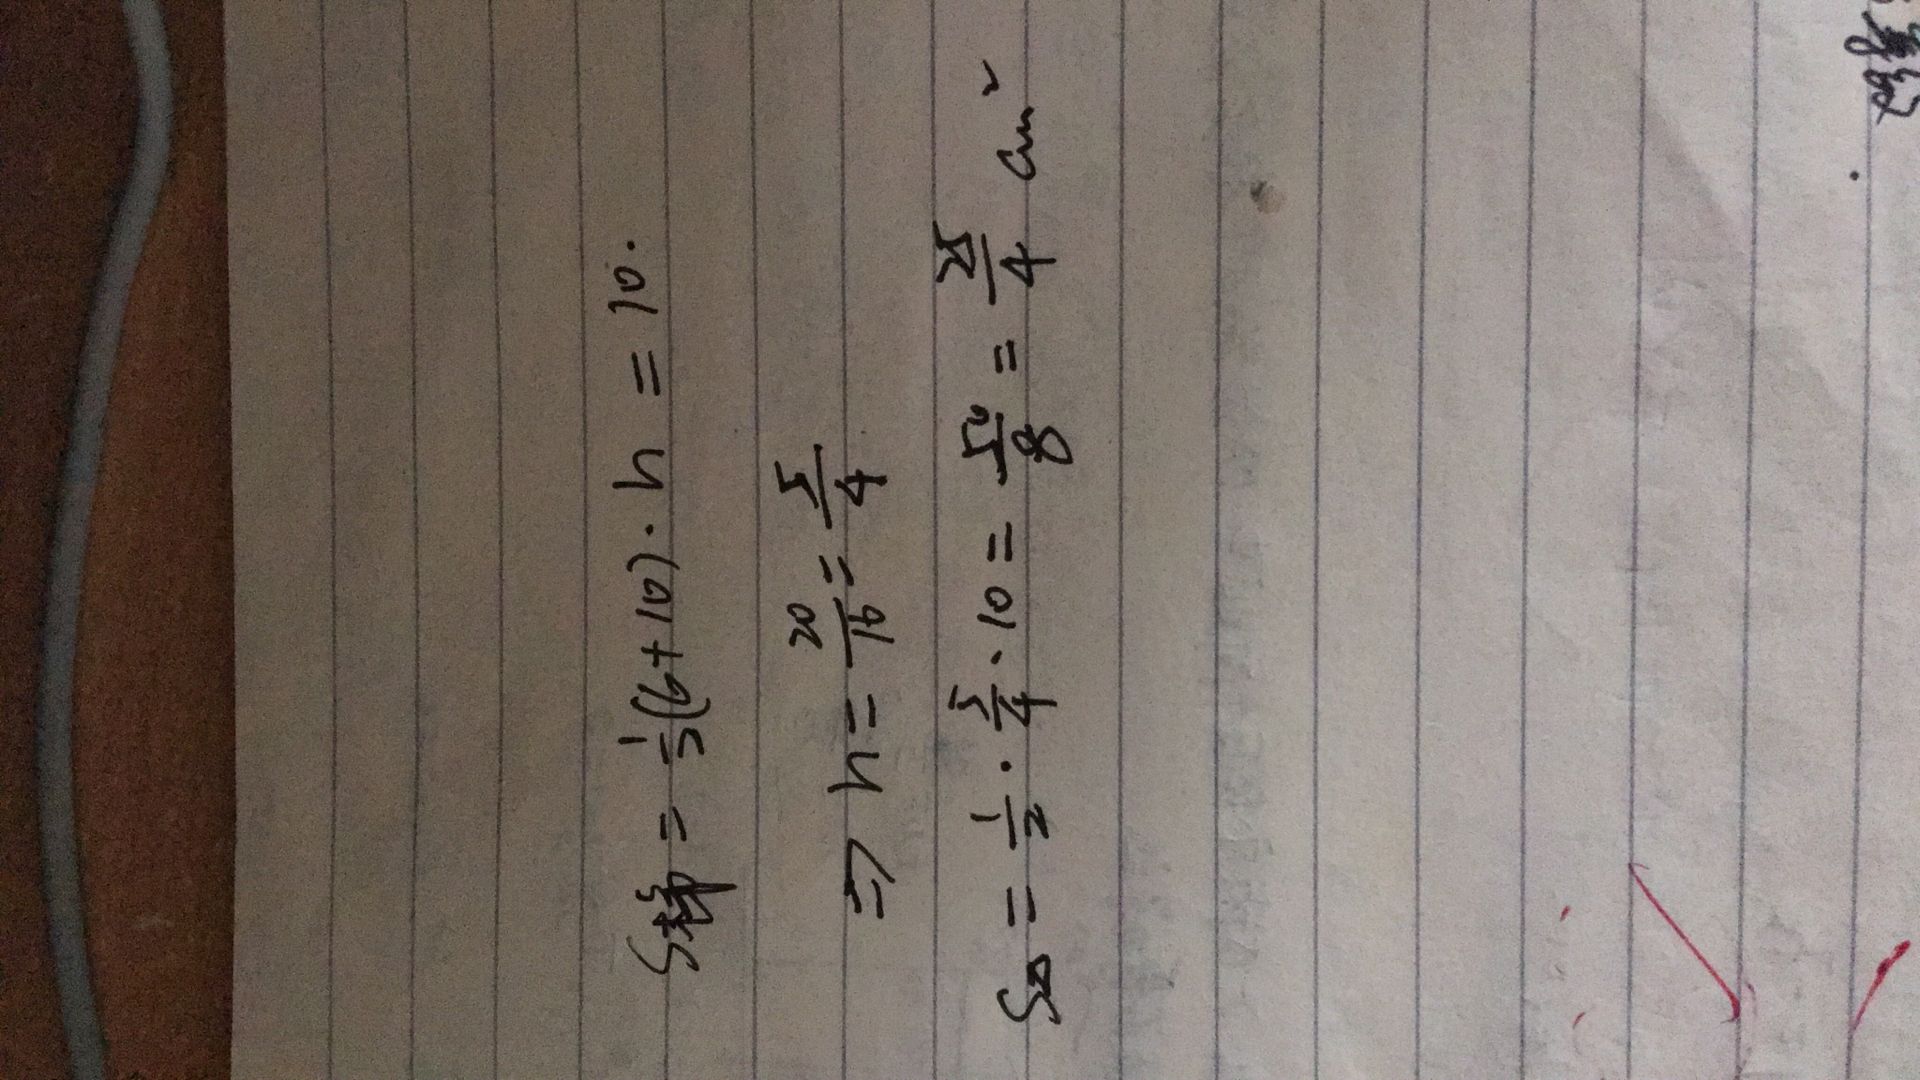 S梯 = 1/2(6+10)·h = 10.
⇒ h = 20/16 = 5/4
S△ = 1/2 · 5/4 · 10 = 50/8 = 25/4 cm²